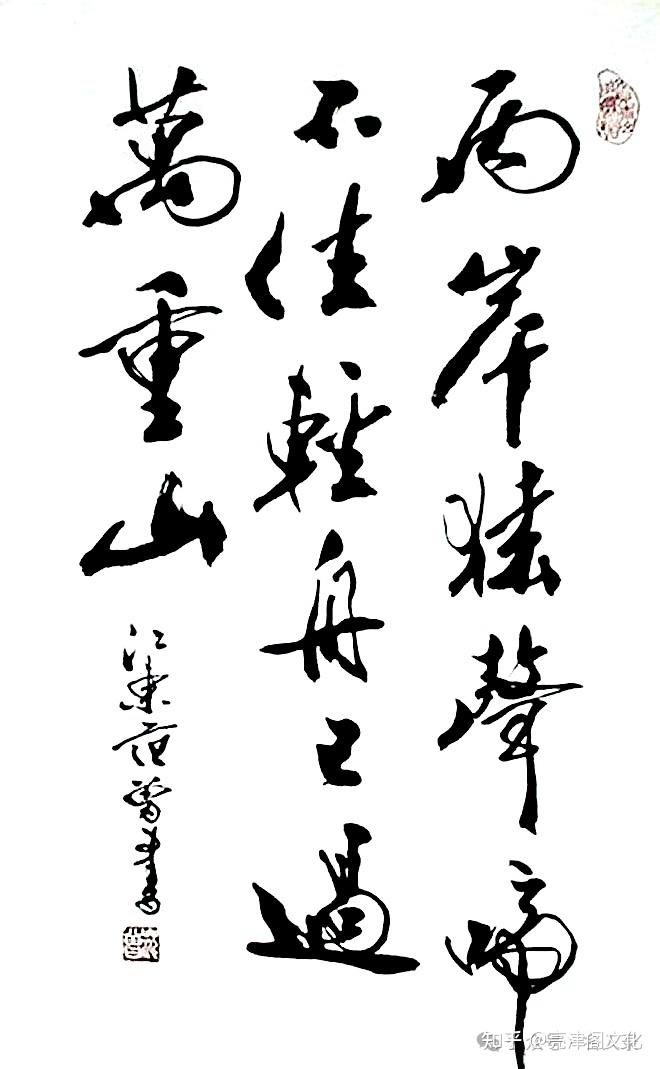 两岸猿聲啼
不住輕舟已過
萬重山
江東范曾書
知乎 @亮津图文化